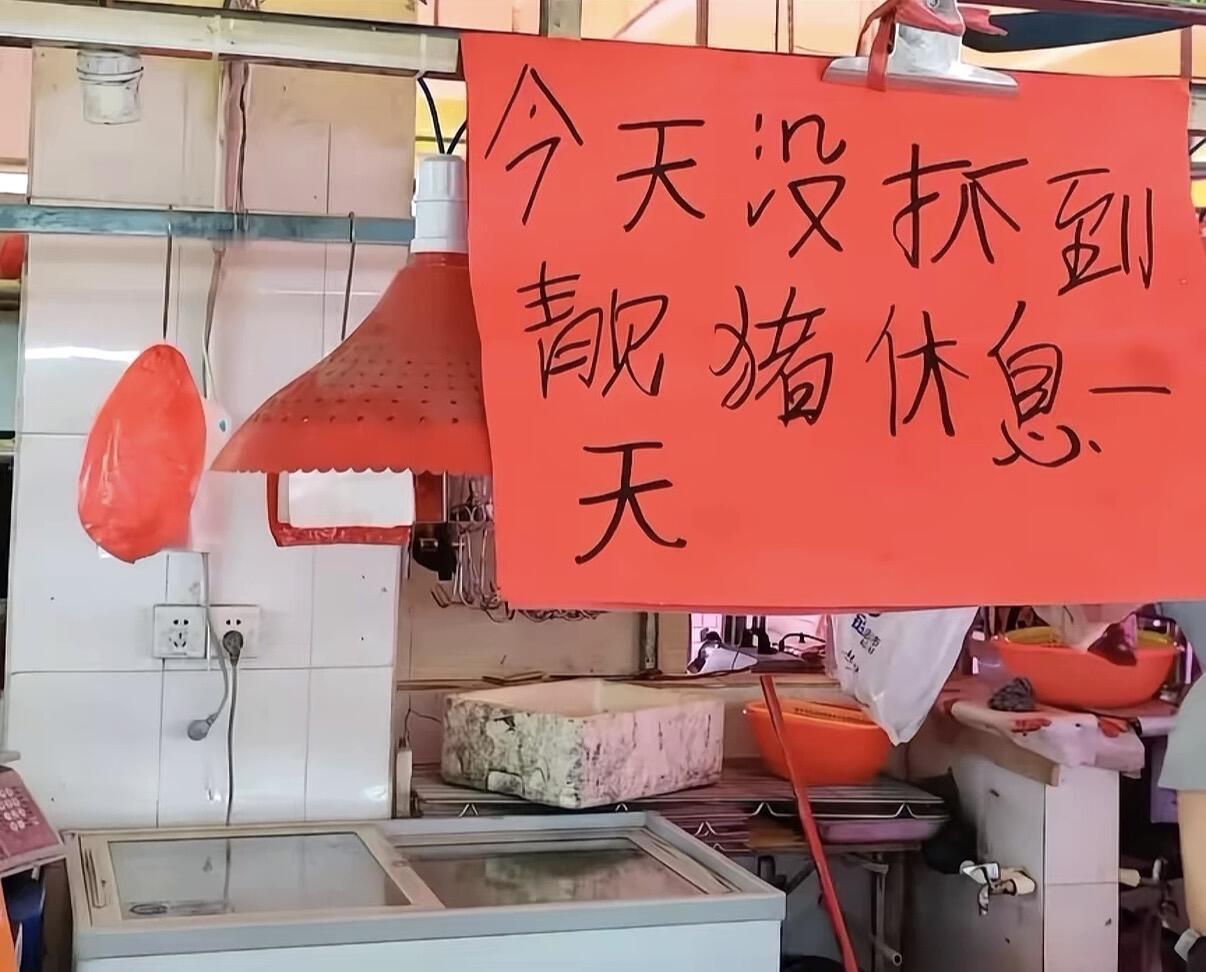 今天没抓到
靓猪休息一
天